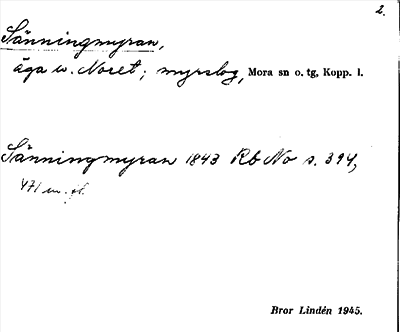 2.
Sänningmyran,
äga w. Noret; myrslog, Mora sn o. tg, Kopp. l.
Sänningmyran 1843 Rb No s. 394,
471 m. fl.
Bror Lindén 1945.